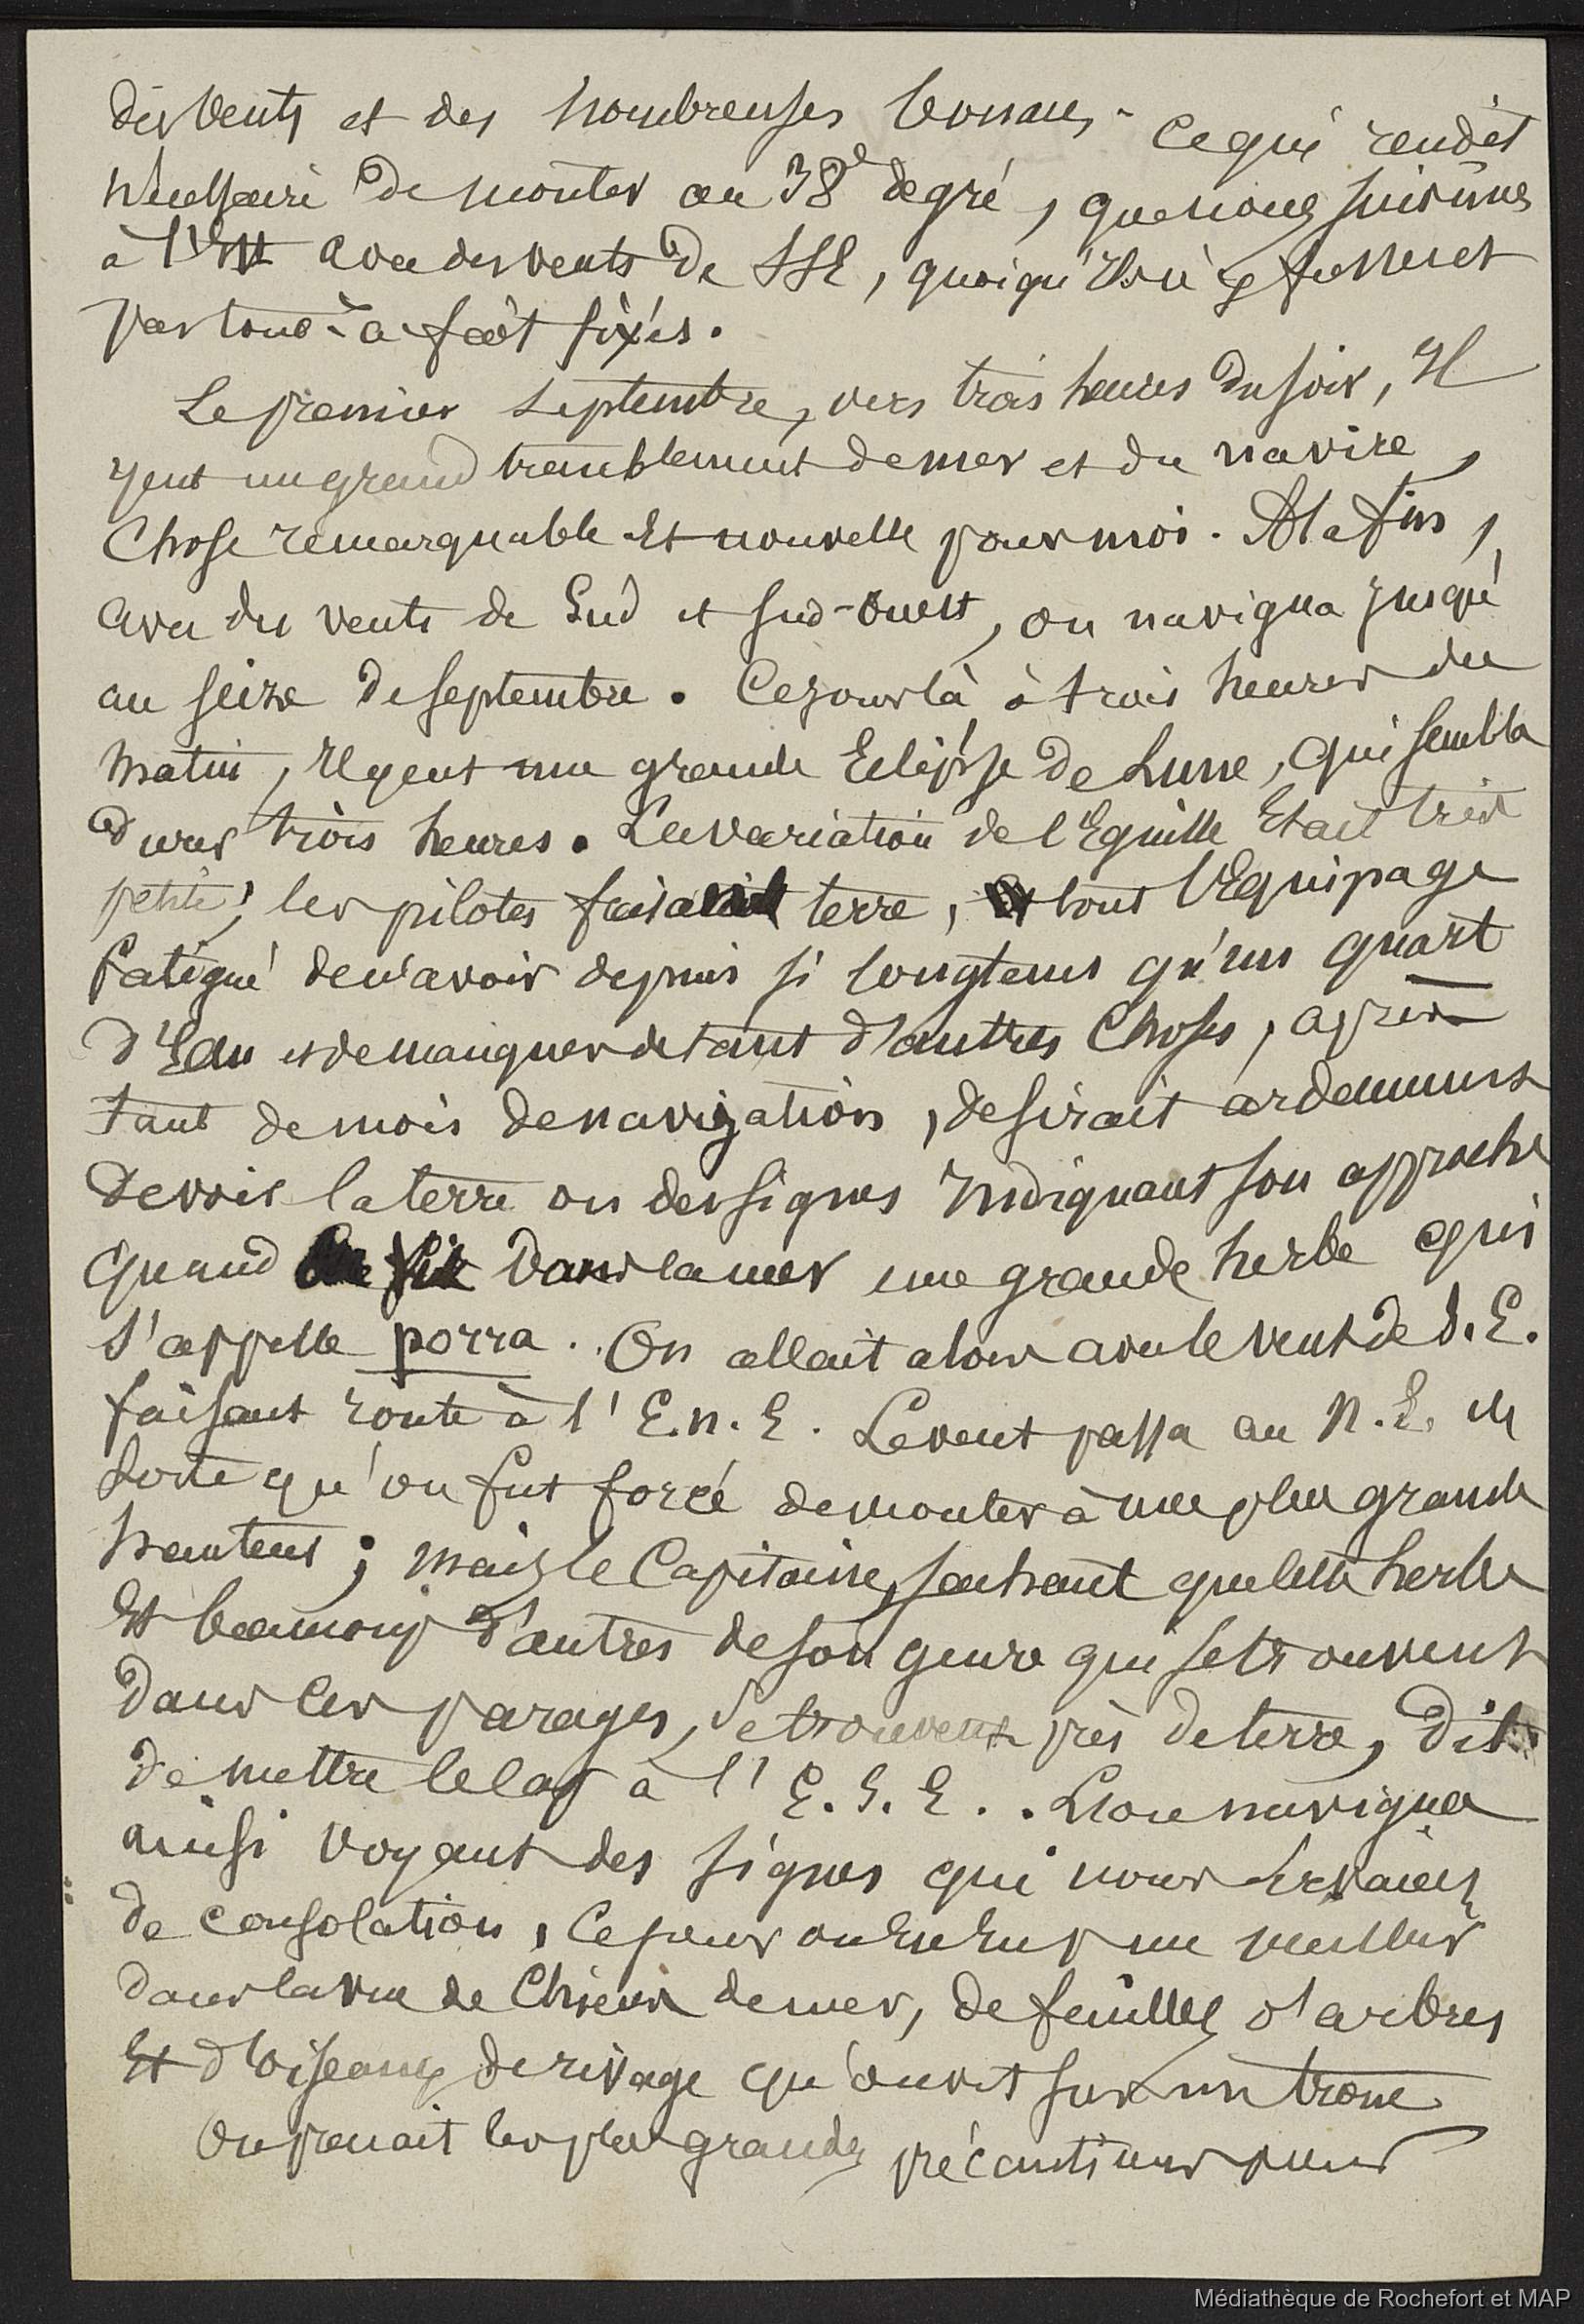 des vents et des nombreuses bonaces - ce qui rendit
nécessaire de monter au 38e degré, que nous suivîmes
à l'Est avec des vents de SSE, quoiqu'ils ne fussent
pas tout-à-fait fixés.
Le premier septembre, vers trois heures du soir, Il
y eut un grand tremblement de mer et du navire,
Chose remarquable et nouvelle pour moi. A la fin,
avec des vents de Sud et sud-ouest, on navigua jusqu'
au seize de septembre. Ce jour là, à trois heures du
matin, Il y eut une grande Eclipse de Lune, qui sembla
durer trois heures. La variation de l'Eguille Etait très
petite; les pilotes faisaient terre, et tout l'Equipage
fatigué de n'avoir depuis si longtems qu'un quart
d'Eau et de manquer de tant d'autres choses, après
tant de mois de navigation, desirait ardemment
de voir la terre ou des signes Indiquant son approche
quand dans la mer une grande herbe qui
s'appelle porra. On allait alors avec le vent de S.E.
faisant route à l' E.n.E. Le vent passa au N.E. de
sorte qu'on fut forcé de monter à une plus grande
hauteur; mais le Capitaine, sachant que cette herbe
Et beaucoup d'autres de son genre qui se trouvent
dans ces parages, se trouvent près de terre, dit
de mettre le cap à l' E.S.E. . L'on navigua
ainsi voyant des signes qui nous servaient
de consolation,
dans la vue de Chiens de mer, de feuilles d'arbres
Et d'oiseaux de rivage qu'on vit sur un tronc
On prenait les plus grandes précautions pour
Médiathèque de Rochefort et MAP